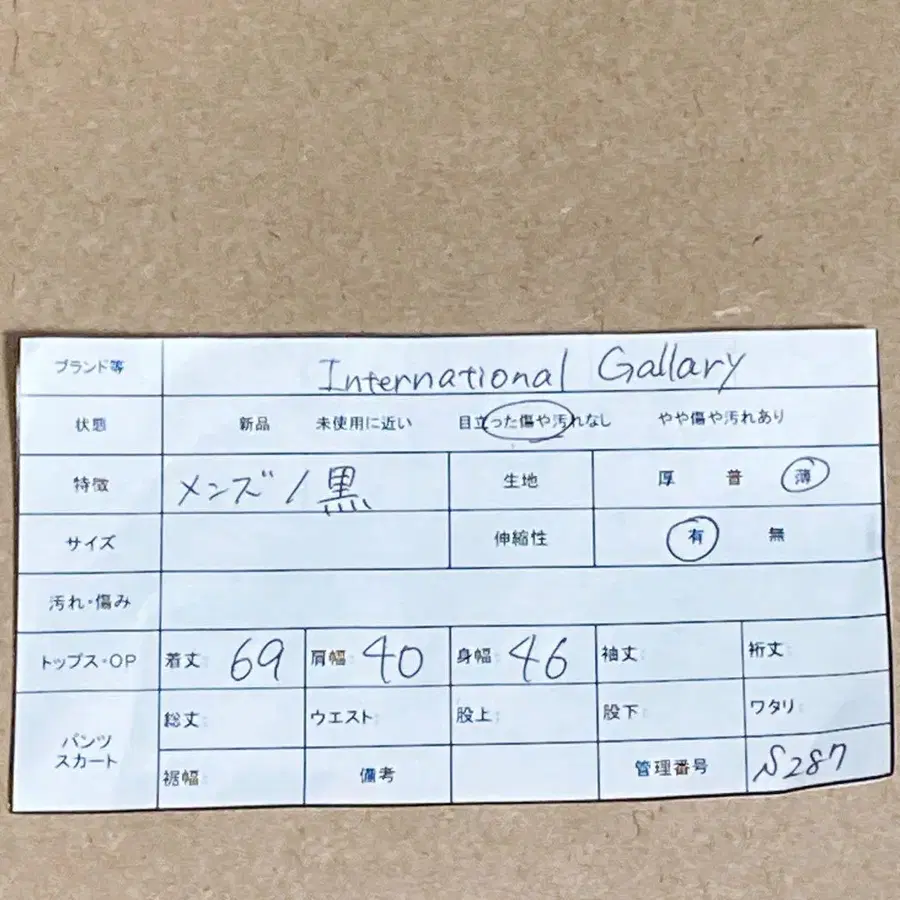 ブランド等 International Gallary
状態 新品 未使用に近い 目立った傷や汚れなし やや傷や汚れあり
特徴 メンズ/黒 生地 厚 普 薄
サイズ 伸縮性 有 無
汚れ・傷み
トップス・OP 着丈: 69 肩幅: 40 身幅: 46 袖丈: 裄丈:
パンツ スカート 総丈: ウエスト: 股上: 股下: ワタリ:
裾幅: 備考 管理番号 S287